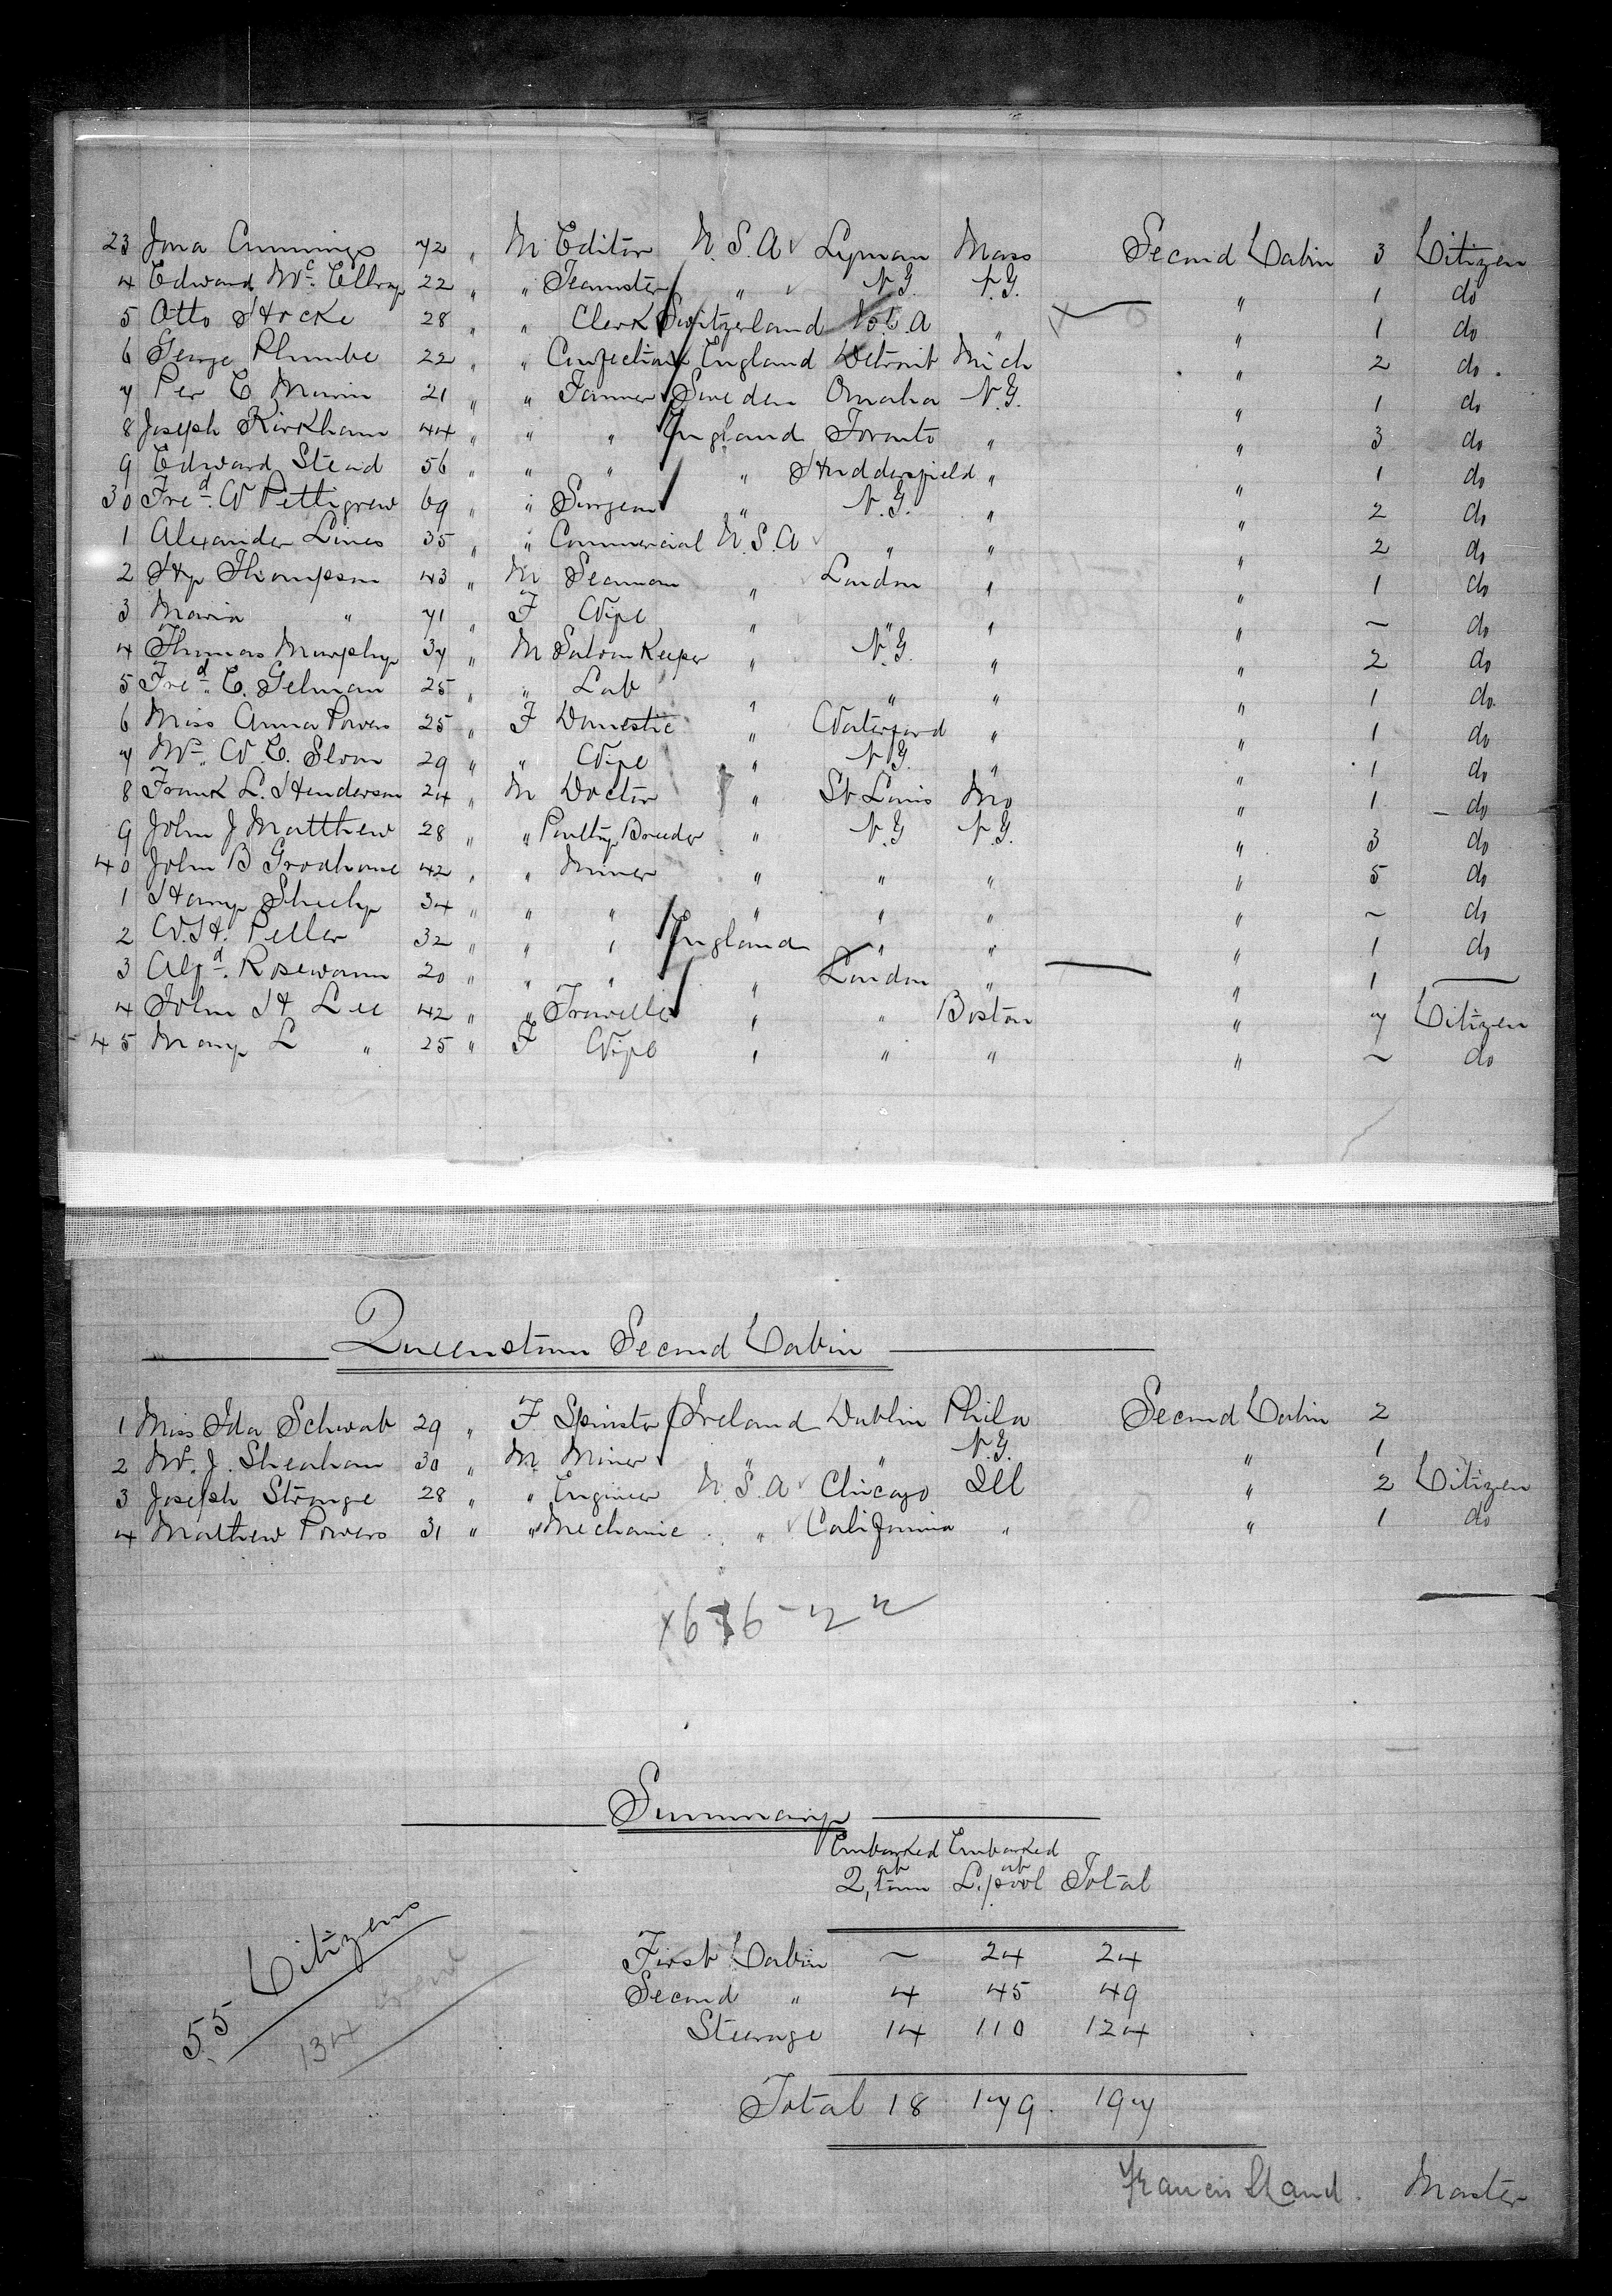 23 Jona Cummings 72 " M Editor U.S.A Lyman Mass Second Cabin 3 Citizen
4 Edward McEllroy 22 " " Teamster " N.G. N.G. " 1 do
5 Otto Hocke 28 " " Clerk Switzerland U.S.A " " 1 do
6 George Plumbe 22 " " Confection England Detroit Mich " 2 do
7 Per E Morin 21 " " Farmer Sweden Omaha N.G. " 1 do
8 Joseph Kirkham 44 " " " England Toronto " " 3 do
9 Edward Stead 56 " " " " Huddersfield " " 1 do
30 Fred W Pettigrew 69 " " Surgeon " N.G. " " 2 do
1 Alexander Lines 35 " " Commercial U.S.A " " " 2 do
2 Hy Thompson 43 " M Seaman " London " " 1 do
3 Maria " 71 " F Wife " " " " ~ do
4 Thomas Murphy 37 " M Saloon Keeper " N.G. " " 2 do
5 Fred E. Gelman 25 " " Lab " " " " 1 do
6 Miss Anna Powers 25 " F Domestic " Waterford " " 1 do
7 Mrs W. E. Sloan 29 " " Wife " N.G. " " 1 do
8 Frank L. Henderson 24 " M Doctor " St Louis Mo " 1 do
9 John J Matthew 28 " " Poultry Breeder " N.G N.G. " 3 do
40 John B Grodhouse 42 " " Miner " " " " 5 do
1 Harry Sheehy 34 " " " " " " " ~ do
2 W.H. Peller 32 " " " England " " " 1 do
3 Alfd Rosewarn 20 " " " " London " " 1
4 John H Lee 42 " " Traveller " " Boston " 7 Citizen
45 Mary L " 25 " F Wife " " " " ~ do
Queenstown Second Cabin
1 Miss Ida Schwab 29 " F Spinster Ireland Dublin Phila Second Cabin 2
2 M. J. Sheahan 30 " M Miner " " N.G. " 1
3 Joseph Strange 28 " " Engineer U.S.A Chicago Ill " 2 Citizen
4 Mathew Powers 31 " " Mechanic " California " " 1 do
Summary
Embarked Embarked
at at
Q,town L.pool Total
First Cabin ~ 24 24
Second " 4 45 49
Steerage 14 110 124
Total 18 179 197
55 Citizens
134
Francis Master